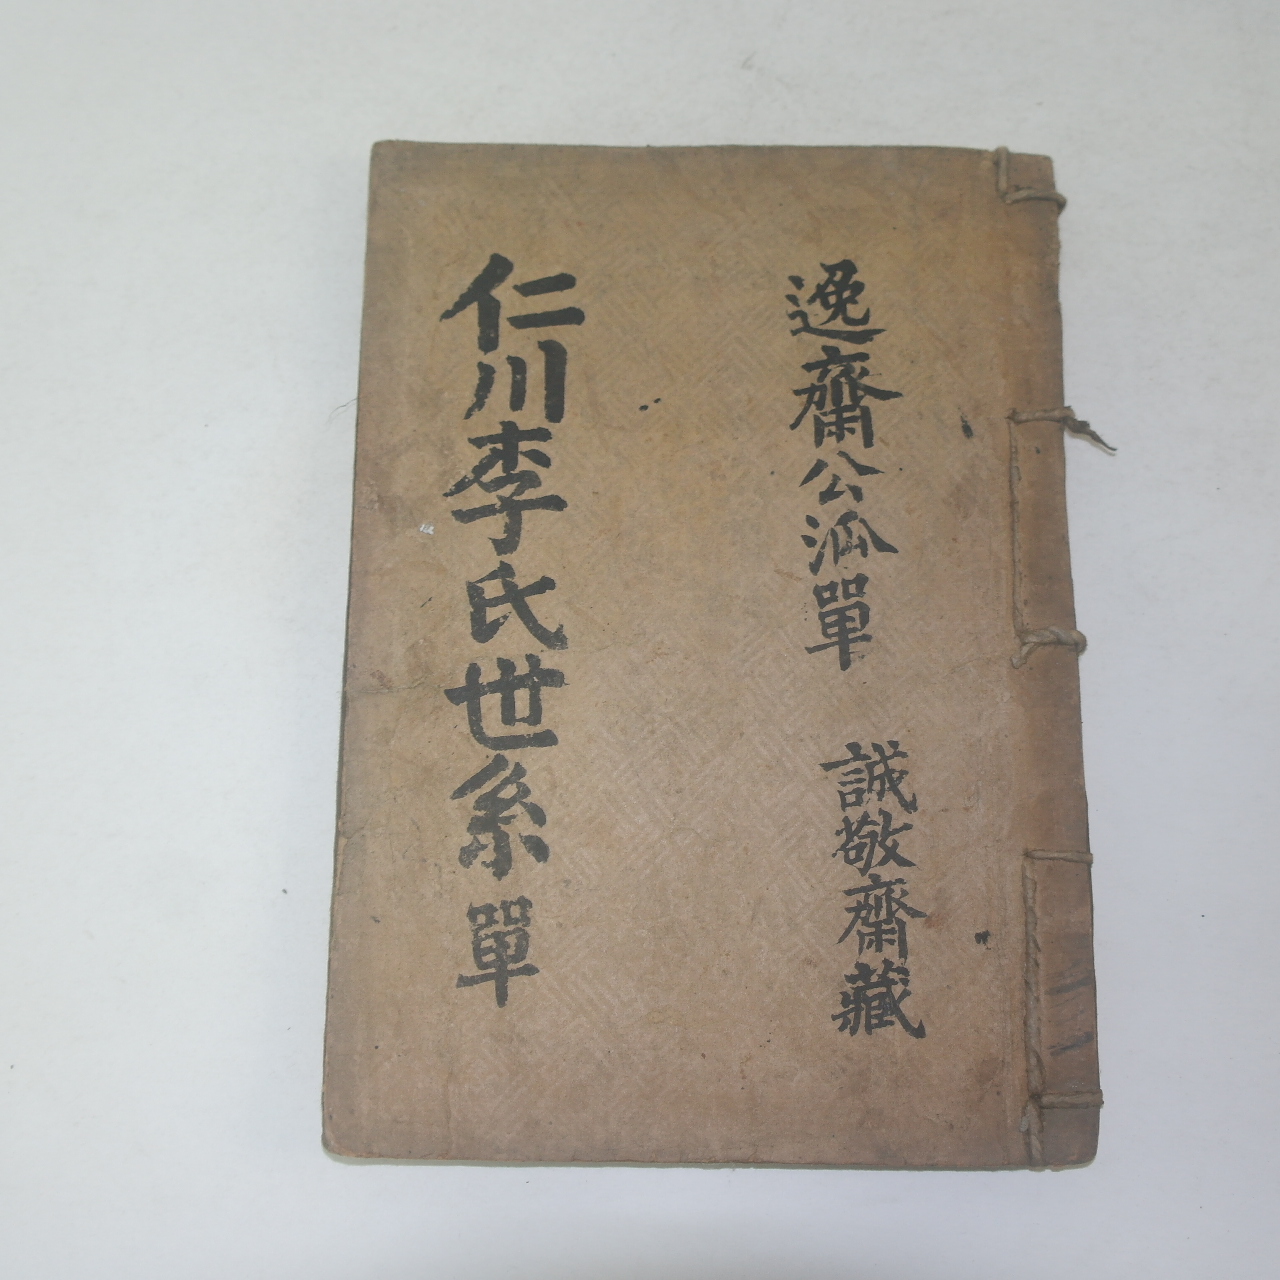 逸齋公派單 誠敬齋藏
仁川李氏世系單